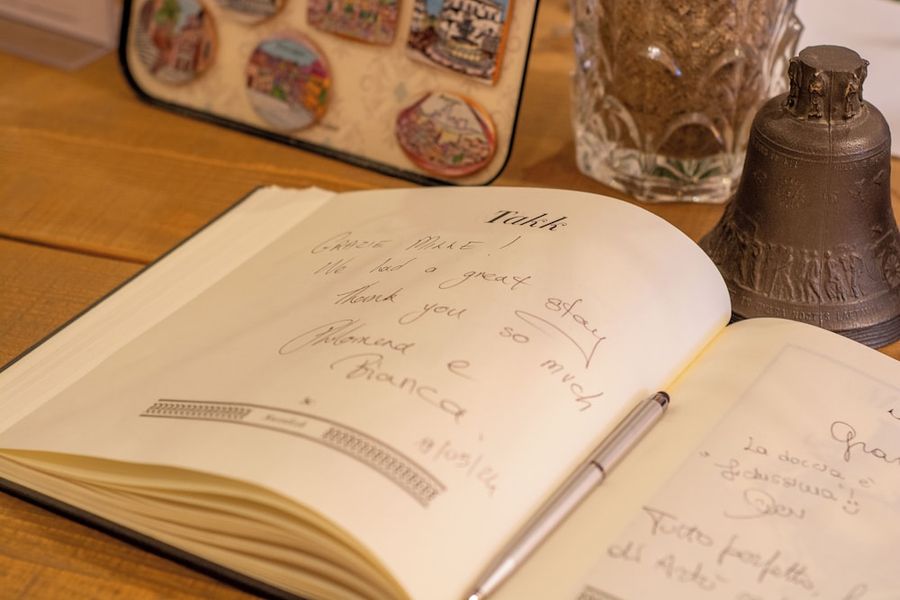 Takk
GRAZIE MILLE !
We had a great stay
Thank you so much
Philomena e
Bianca
Gra
La doccia è
"fichissima"!
Tutto perfetto,
di